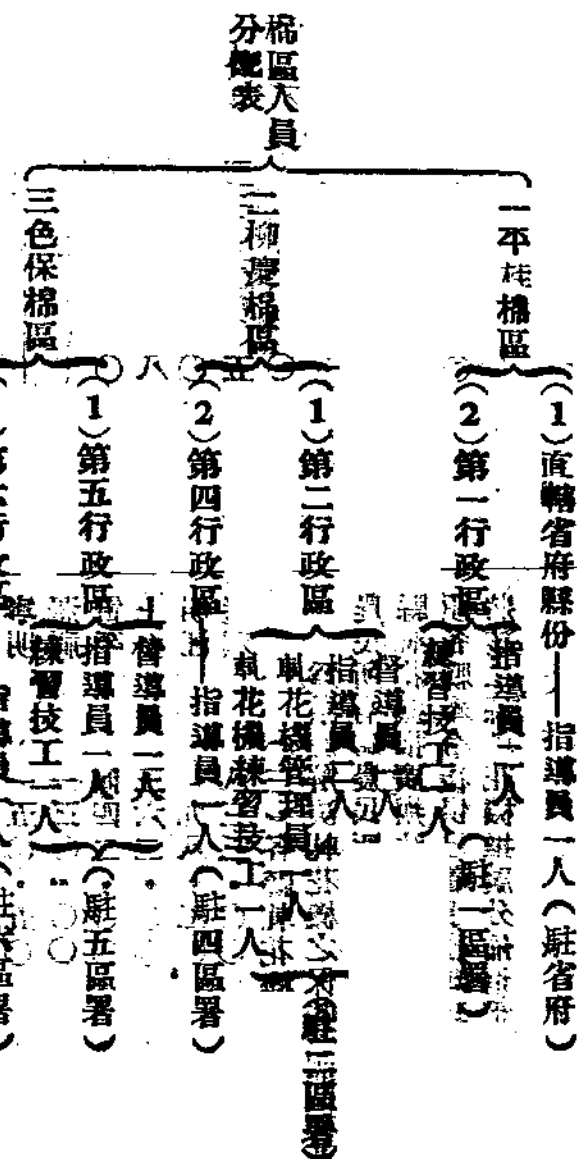 棉區人員
分配表
一平桂棉區
(1)直轄省府縣份——指導員一人(駐省府)
(2)第一行政區
指導員二人
練習技工一人
(駐一區署)
二柳慶棉區
(1)第二行政區
督導員一人
指導員二人
軋花機管理員一人
軋花機練習技工一人
(駐二區署)
(2)第四行政區——指導員一人(駐四區署)
三色保棉區
(1)第五行政區
督導員一人
指導員一人
練習技工一人
(駐五區署)